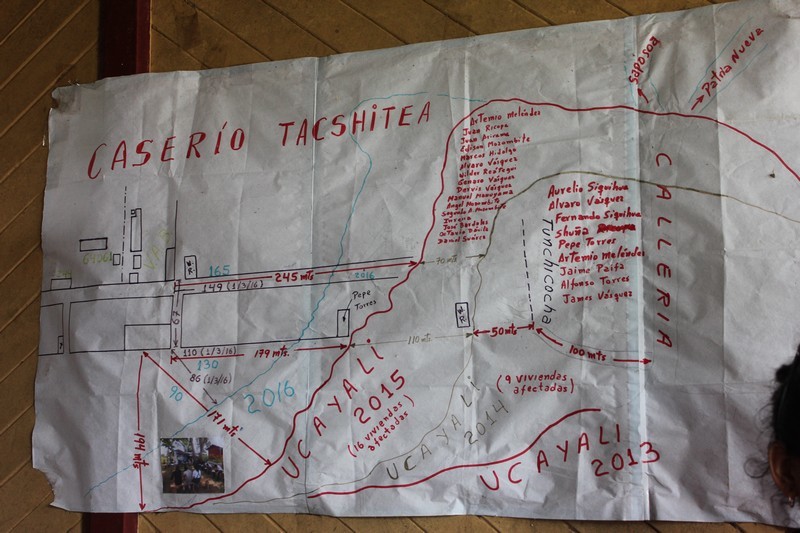 CASERÍO TACSHITEA
Saposoa
Patria Nueva
CALLERIA
Artemio Meléndez
Juan Ricopa
Juan Arirama
Edison Mozombite
Marcos Hidalgo
Alvaro Vásquez
Wilder Reátegui
Genaro Vásquez
Dervis Vásquez
Manuel Manuyama
Angel Mozombite
Segundo A. Mozombite
José Bardales
Octavio Dávila
Daniel Suárez
Aurelio Siquihua
Alvaro Vásquez
Fernando Siquihua
Shuña
Pepe Torres
Artemio Meléndez
Jaime Paifa
Alfonso Torres
James Vásquez
Tunchicocha
165
245 mts
2016
149 (1/3/16)
70 mts
67
Pepe
Torres
110 (1/3/16)
179 mts.
110 mts
50 mts
100 mts
130
86 (1/3/16)
90
171 mts
194 mts
2016
UCAYALI
2015
(16 viviendas
afectadas)
UCAYALI
2014
(9 viviendas
afectadas)
UCAYALI
2013